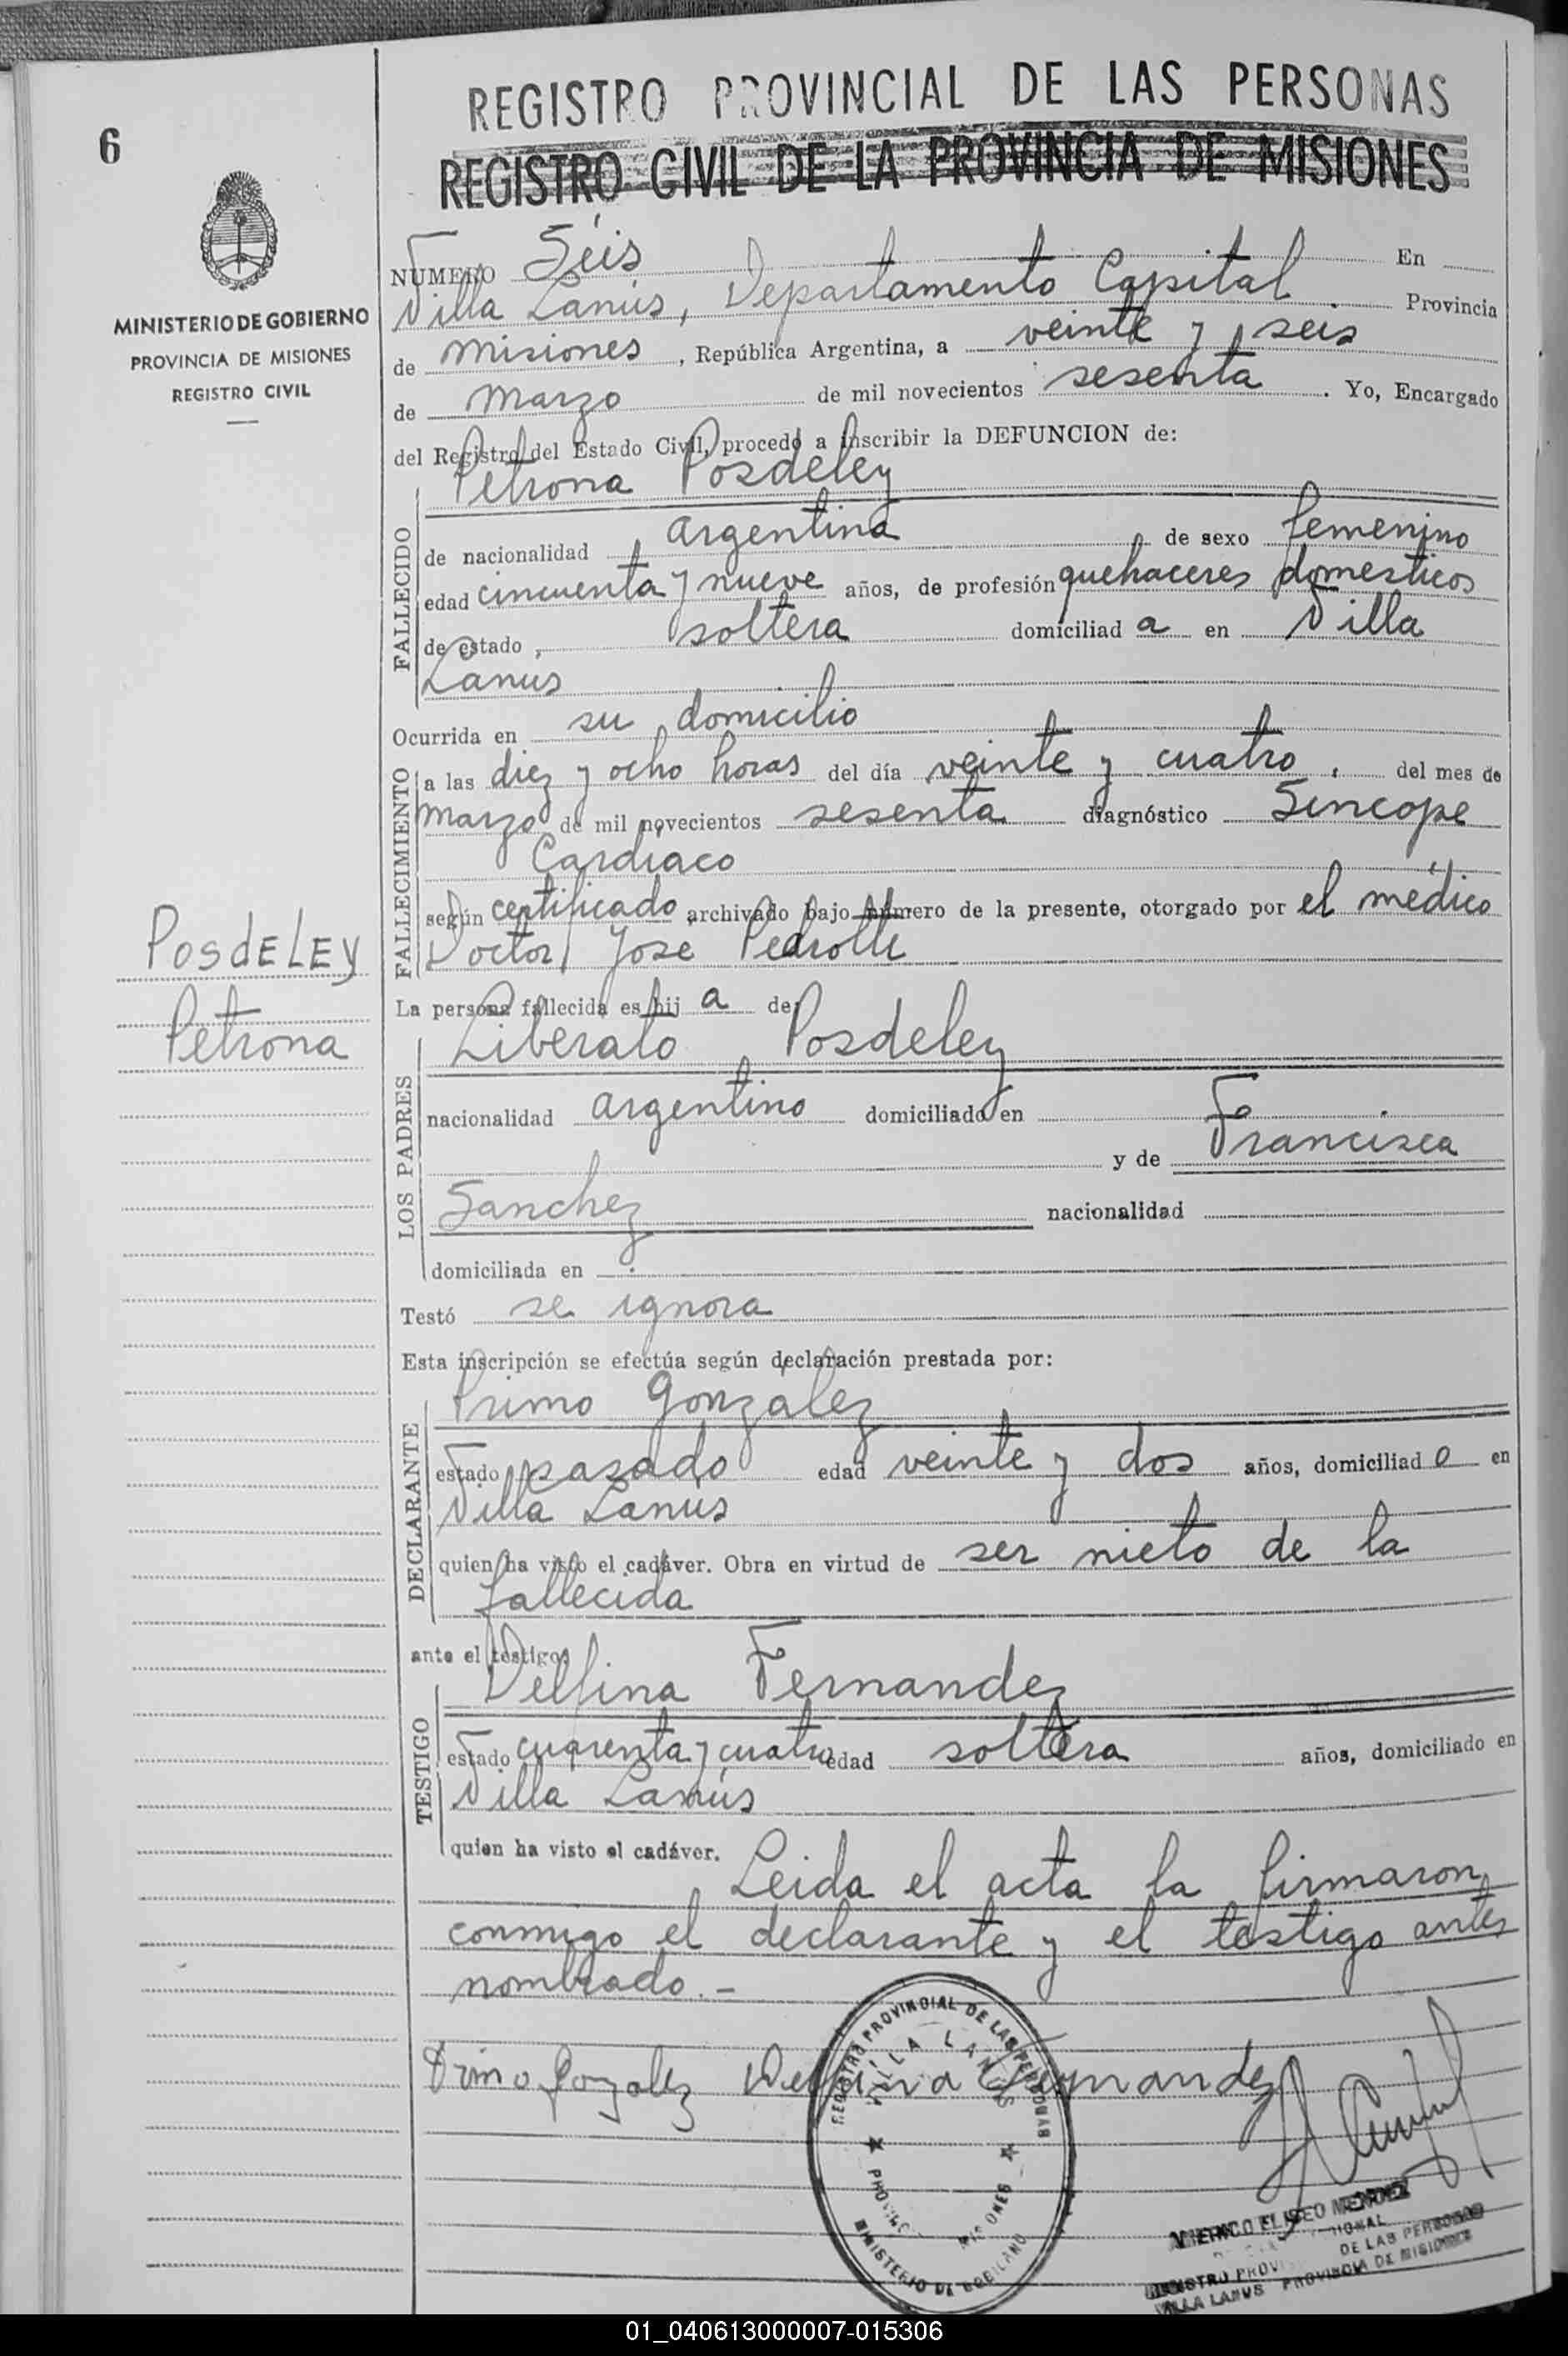 REGISTRO PROVINCIAL DE LAS PERSONAS
REGISTRO CIVIL DE LA PROVINCIA DE MISIONES
6
MINISTERIO DE GOBIERNO
PROVINCIA DE MISIONES
REGISTRO CIVIL
NUMERO Séis En
Villa Lanús, Departamento Capital. Provincia
de Misiones, República Argentina, a veinte y seis
de Marzo de mil novecientos sesenta. Yo, Encargado
del Registro del Estado Civil, procedo a inscribir la DEFUNCION de:
Petrona Posdeley
FALLECIDO
de nacionalidad argentina de sexo femenino
edad cincuenta y nueve años, de profesión quehaceres domesticos
de estado soltera domiciliad a en Villa
Lanus
Ocurrida en su domicilio
FALLECIMIENTO
a las diez y ocho horas del día veinte y cuatro, del mes de
Marzo de mil novecientos sesenta diagnóstico Sincope
Cardiaco
según certificado archivado bajo número de la presente, otorgado por el médico
Doctor José Pedrotti
POSdELEY
Petrona
La persona fallecida es hij a de:
Liberato Posdeley
LOS PADRES
nacionalidad argentino domiciliado en
y de Francisca
Sanchez nacionalidad
domiciliada en
Testó se ignora
Esta inscripción se efectúa según declaración prestada por:
Primo Gonzalez
DECLARANTE
estado casado edad veinte y dos años, domiciliad o en
Villa Lanus
quien ha visto el cadáver. Obra en virtud de ser nieto de la
fallecida
ante el testigo:
Delfina Fernandez
TESTIGO
estado cuarenta y cuatro edad soltera años, domiciliado en
Villa Lanús
quien ha visto el cadáver. Leida el acta la firmaron
conmigo el declarante y el testigo antes
nombrado.-
Primo Gonzalez Delfina Fernandez
REGISTRO PROVINCIAL DE LAS PERSONAS
VILLA LANUS
MISIONES
MINISTERIO DE GOBIERNO
AMERICO ELISEO MENDEZ
DE LAS PERSONAS
VILLA LANUS PROVINCIA DE MISIONES
01_040613000007-015306